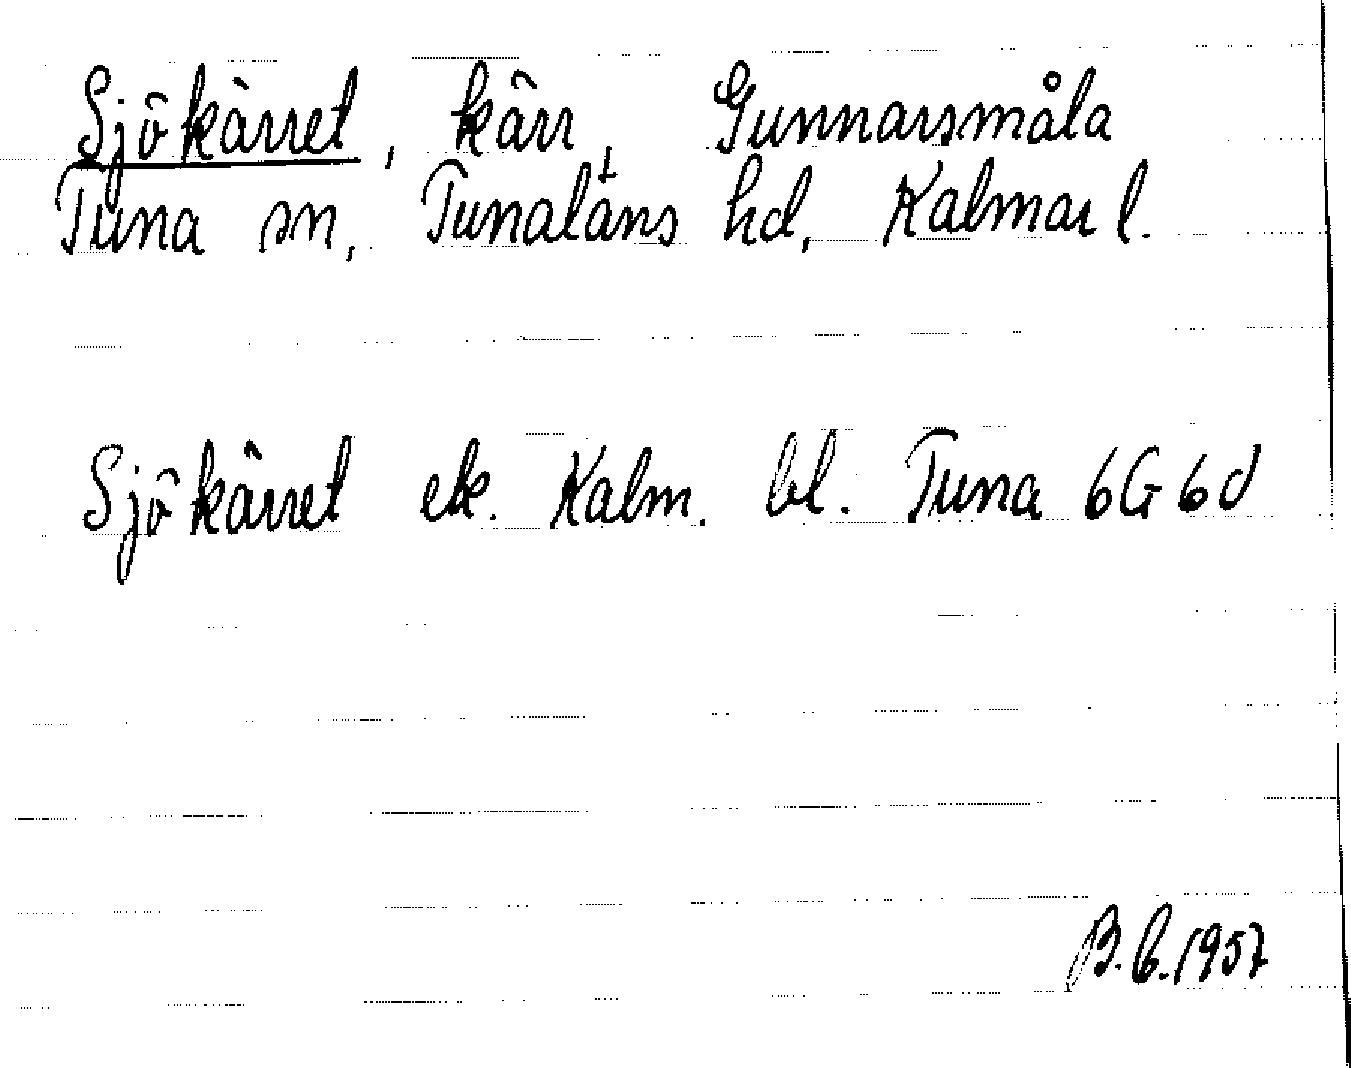 Sjökärret, kärr, Gunnarsmåla
Tuna sn, Tunaläns hd, Kalmar l.
Sjökärret ek. Kalm. bl. Tuna 6G6d
B.G.1957